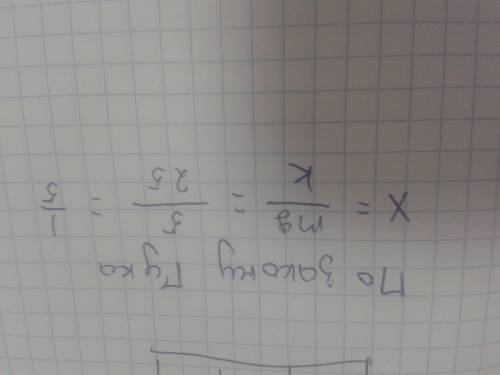 По закону Гука
X = mg/K = 5/25 = 1/5